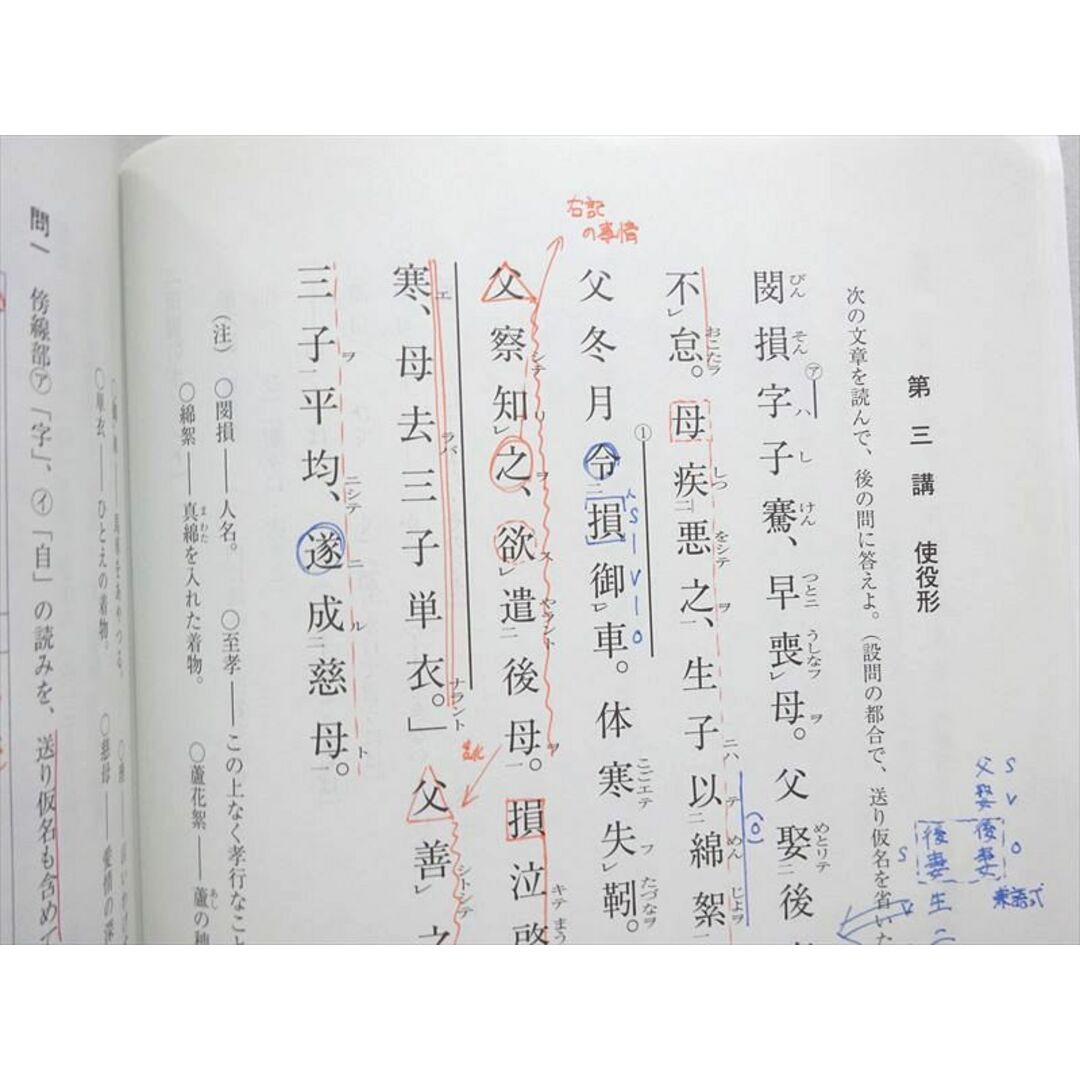 第三講 使役形
次の文章を読んで、後の問に答えよ。(設問の都合で、送り仮名を省いた
閔損字子騫、早喪母。父娶後
不怠。母疾悪之、生子以綿絮
父冬月令損御車。体寒失靷。
父察知之、欲遣後母。損泣啓
寒、母去三子単衣。」父善之
三子平均、遂成慈母。
右記
の事情
S V O
父 娶 後妻
後妻
S
V
生
S V O
①
(注) ○閔損――人名。 ○至孝――この上なく孝行なこと
○綿絮――真綿を入れた着物。 ○蘆花絮――蘆の穂
○単衣――ひとえの着物。
問一 傍線部㋐「字」、㋑「自」の読みを、送り仮名も含めて